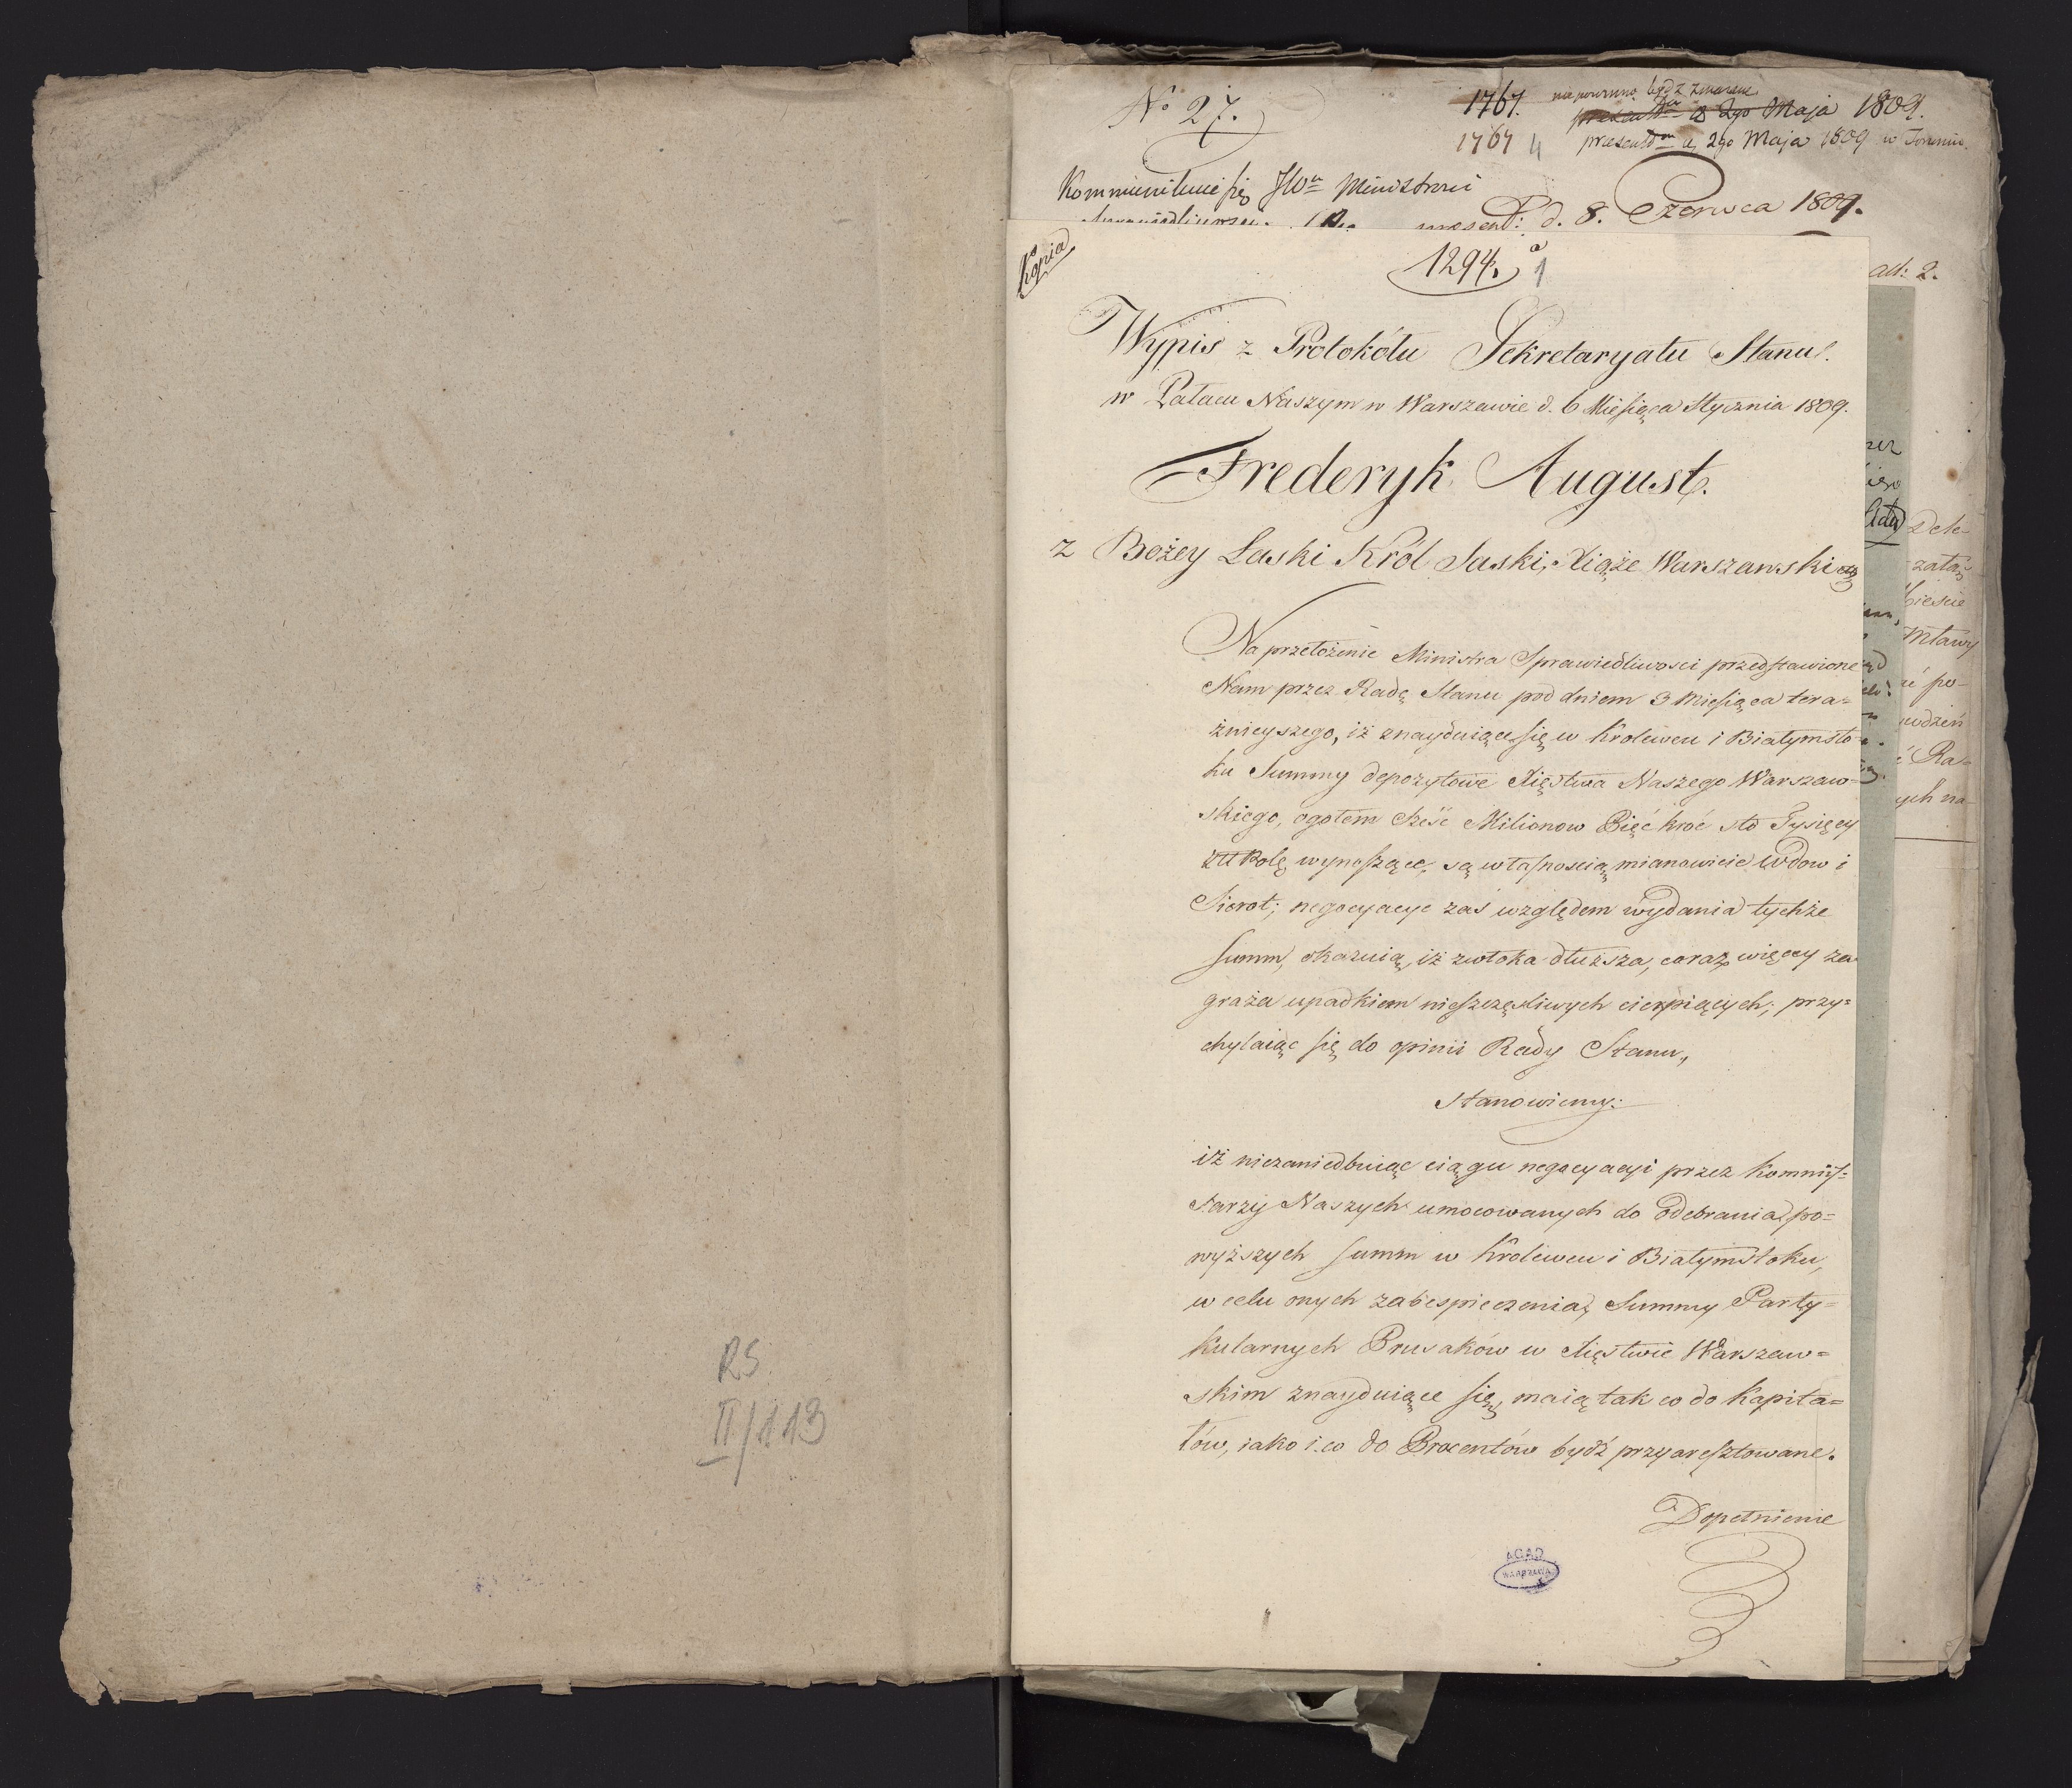 RS
II/113
No 27.
1767. nie powinno bydź zmazane
1767 4
presentm d 2go Maja 1809.
presentm d 2go Maja 1809 w Toruniu.
Kommunikuie się JWu Ministrowi
Sprawiedliwości. present: d. 8. Czerwca 1809.
ad: 2.
Kopia
1294. a 1
Wypis z Protokółu Sekretaryatu Stanu.
w Pałacu Naszym w Warszawie d. 6 Miesiąca Stycznia 1809.
Frederyk August.
z Bożey Łaski Król Saski, Xiąże Warszawski etc
Na przełożenie Ministra Sprawiedliwosci przedstawione
Nam przez Radę Stanu pod dniem 3 Miesiąca tera=
żnieyszego, iż znayduiące się w Krolewcu i Białymsto=
ku Summy depozytowe Xięstwa Naszego Warszaw=
skiego, ogołem Sześć Milionow Pięćkroć sto Tysięcy
złł Polę wynoszące, są własnoscią mianowicie Wdow i
Sierot; negocyacye zaś względem wydania tychże
summ, okazuią, iż zwłoka dłuższa, coraz więcey za
graża upadkiem nieszczęśliwych cierpiących; przy=
chylaiąc się do opinii Rady Stanu,
Stanowiemy:
iż niezaniedbuiąc ciągu negocyacyi przez Kommis=
sarzy Naszych umocowanych do odebrania po=
wyższych summ w Krolewcu i Białymstoku,
w celu onych zabespieczenia, Summy Party=
kularnych Prusaków w Xięstwie Warszaw=
skim znayduiące się, maią tak co do Kapita=
łów, iako i co do Procentów bydź przyaresztowane.
Dopełnienie
AGAD
WARSZAWA
Dele-
zataż
Mławy
ać po-
wodzeń
ć Ra-
ych na-